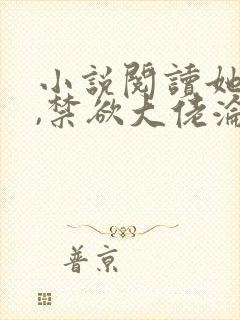 小说閱讀她
,禁欲大佬淪
普京